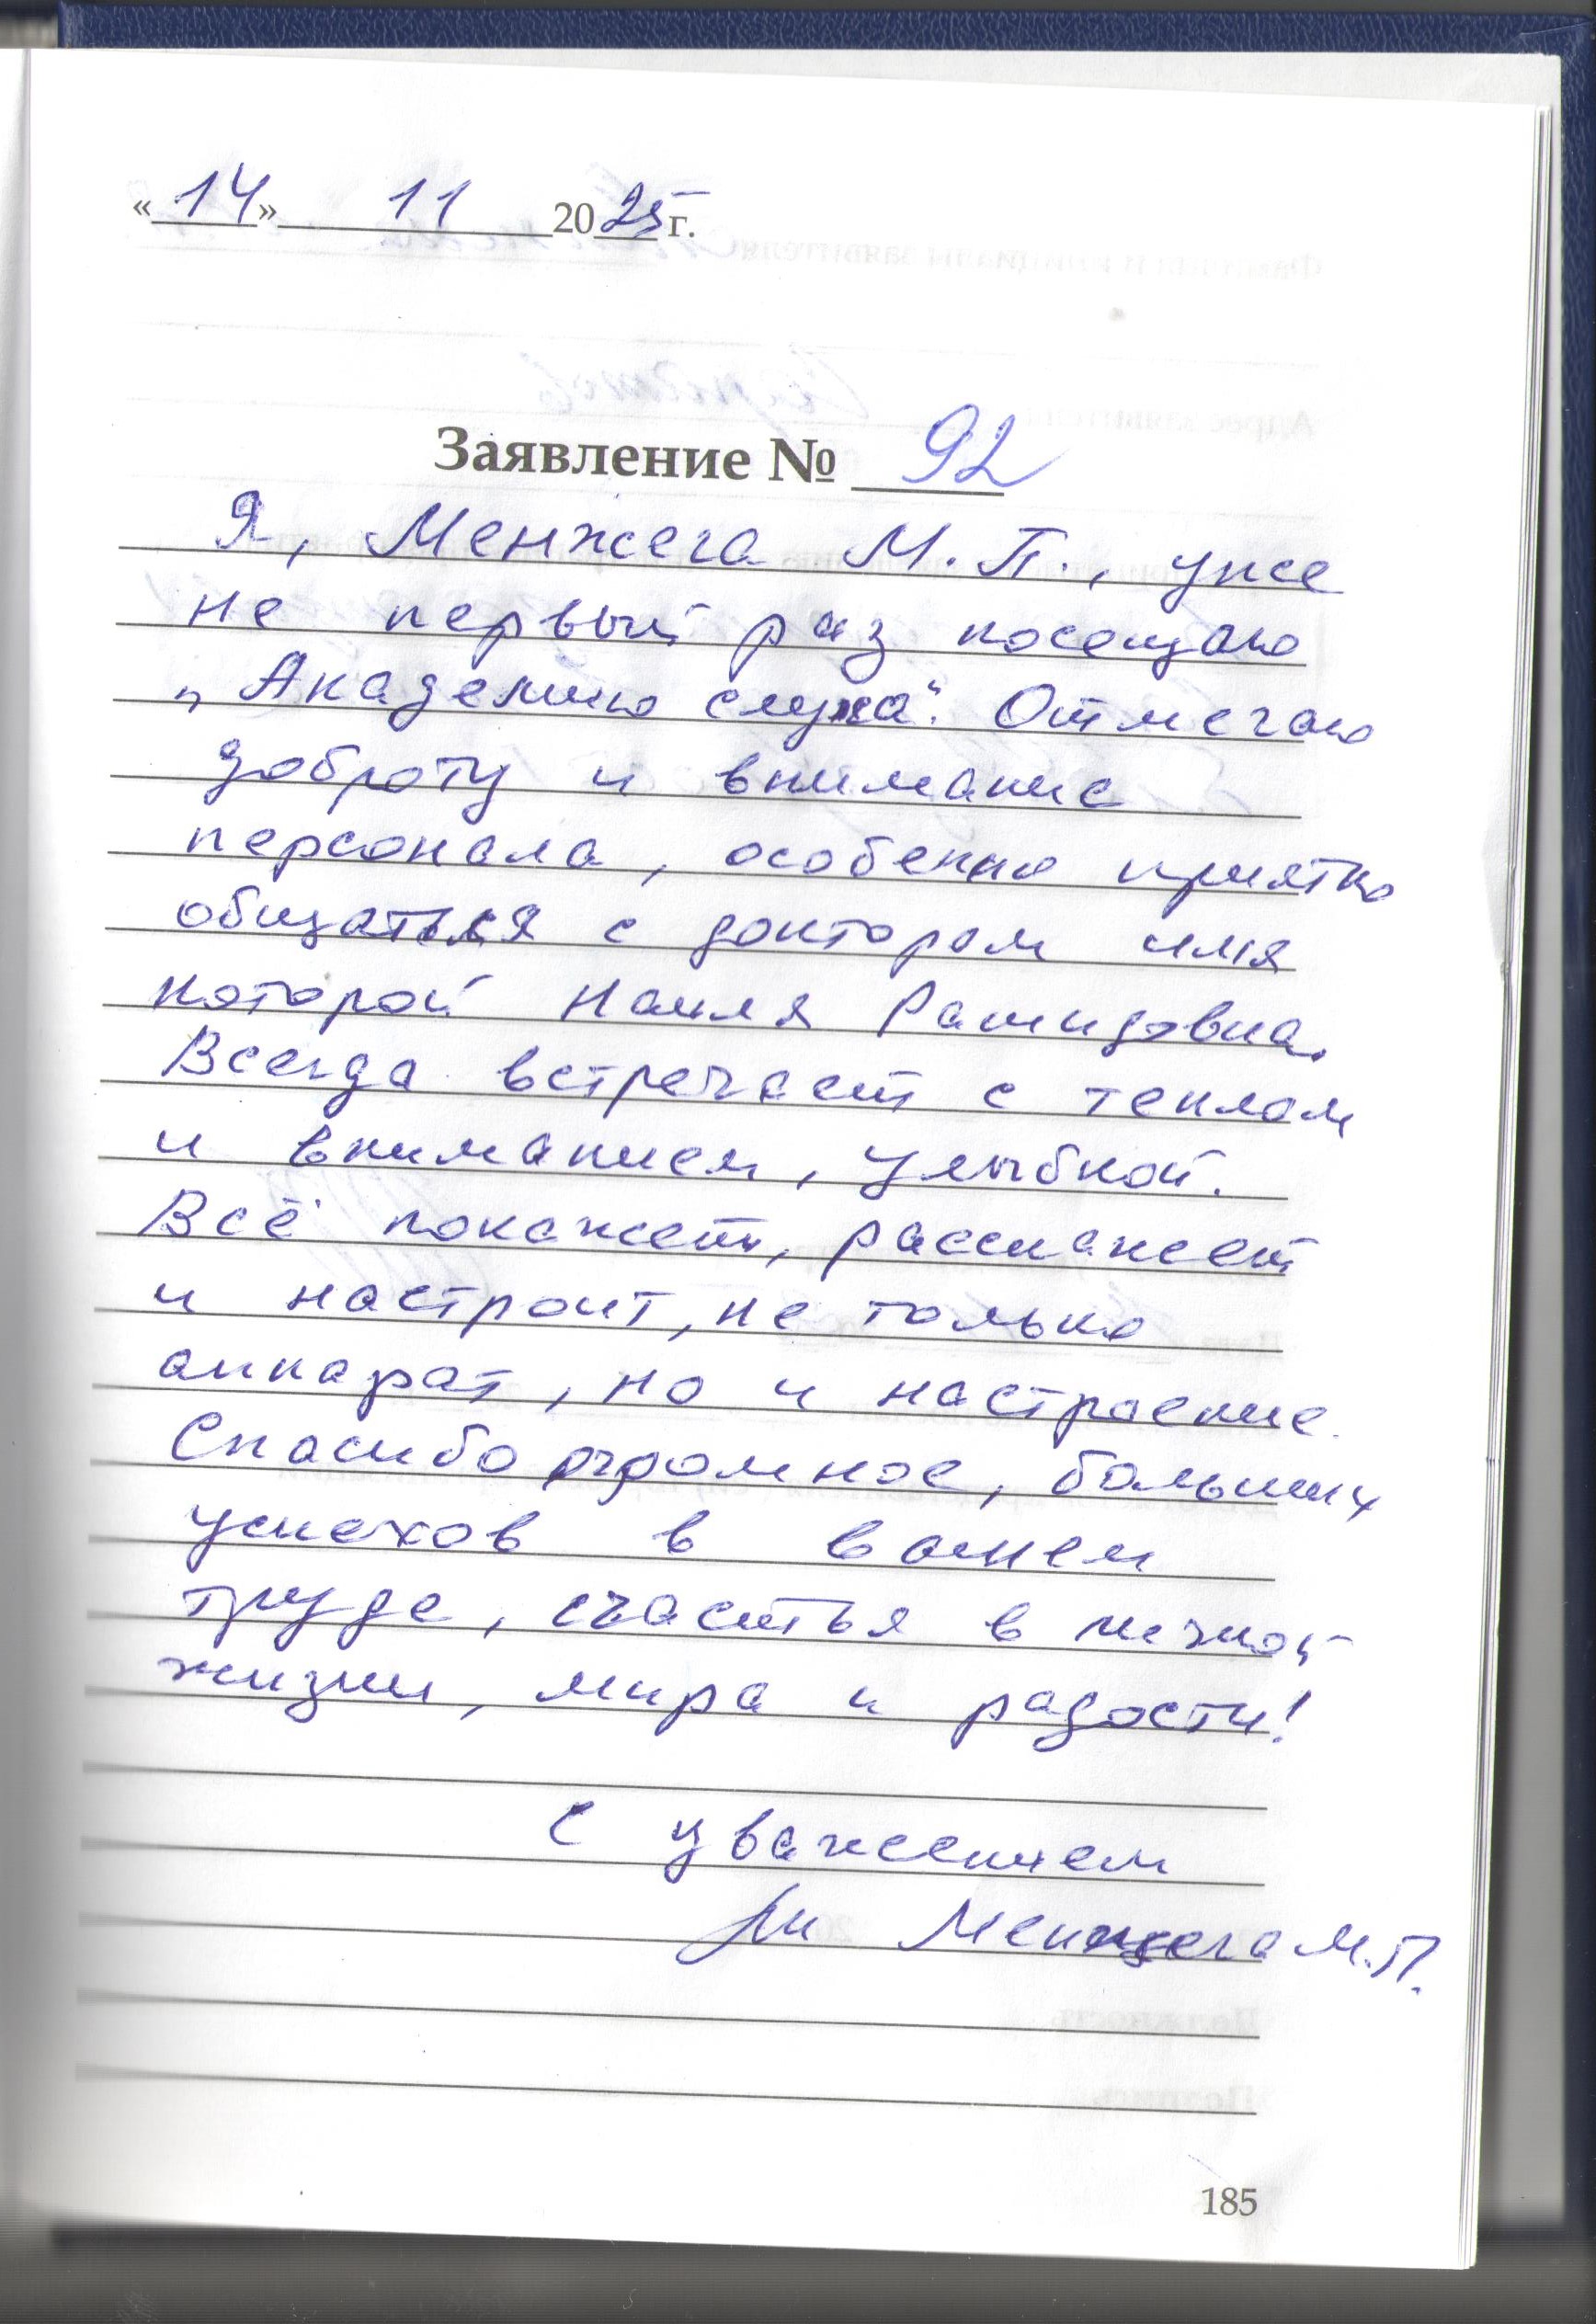 «14» 11 2025 г.
Заявление № 92
Я, Менжега М.П., уже
не первый раз посещаю
„Академию слуха“. Отмечаю
доброту и внимание
персонала, особенно приятно
общаться с доктором имя
которой Наиля Рашидовна.
Всегда встречает с теплом
и вниманием, улыбкой.
Всё покажет, расскажет
и настроит, не только
аппарат, но и настроение.
Спасибо огромное, больших
успехов в вашем
труде, счастья в личной
жизни, мира и радости!
С уважением
Менжега М.П.
185